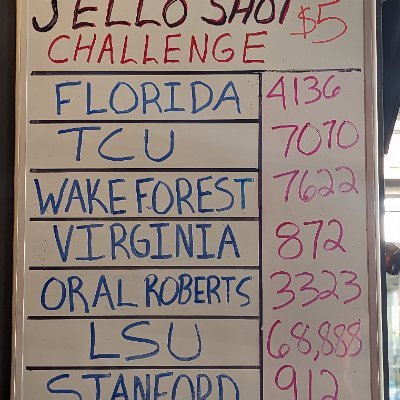 JELLO SHOT $5
CHALLENGE
FLORIDA 4136
TCU 7070
WAKE FOREST 7622
VIRGINIA 872
ORAL ROBERTS 3323
LSU 68,888
STANFORD 912